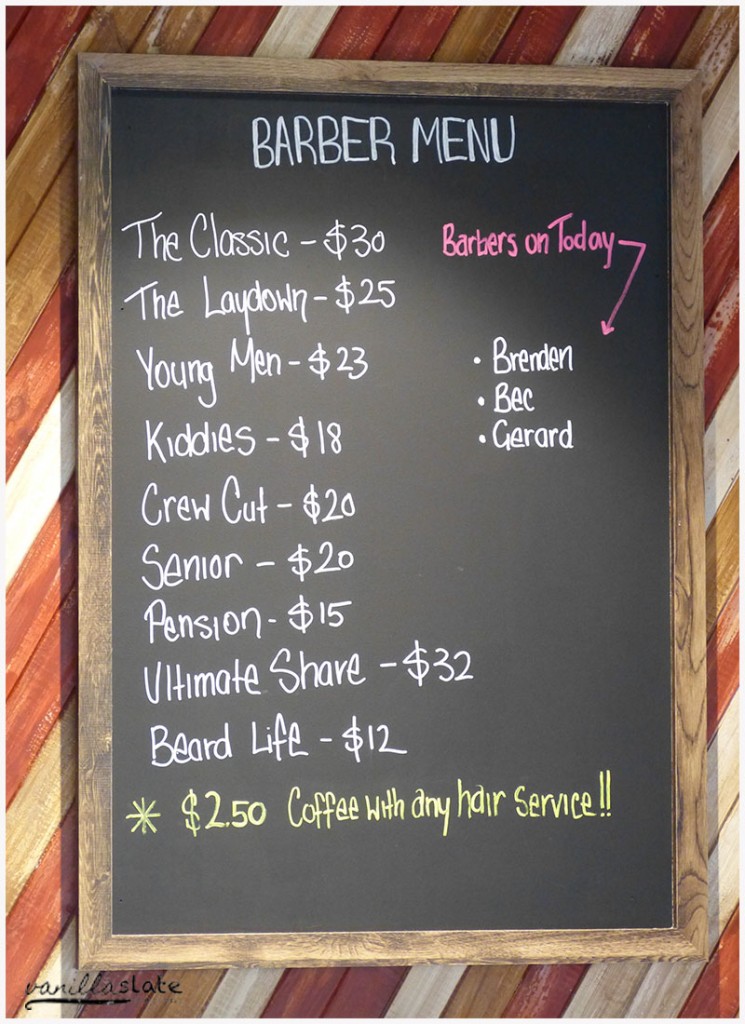 BARBER MENU
The Classic - $30
The Laydown - $25
Young Men - $23
Kiddies - $18
Crew Cut - $20
Senior - $20
Pension - $15
Ultimate Share - $32
Beard Life - $12
Barbers on Today
• Brenden
• Bec
• Gerard
* $2.50 Coffee with any hair service!!
vanillaslate